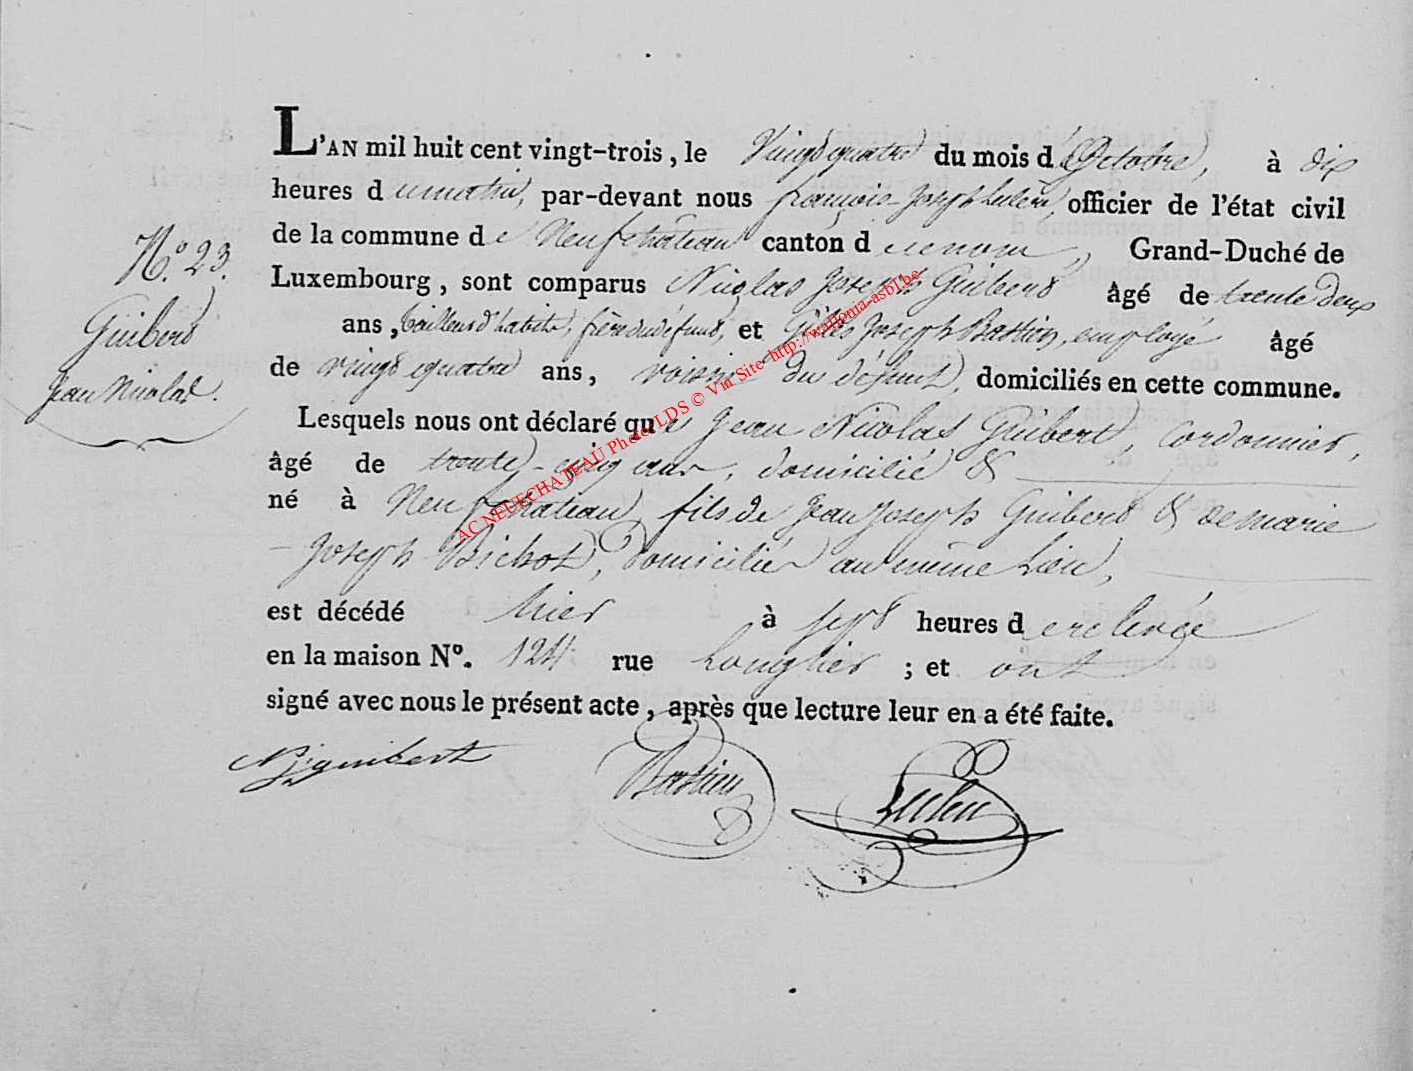 L'AN mil huit cent vingt-trois, le Vingt quatre du mois d'Octobre, à dix
heures du matin, par-devant nous françois Joseph officier de l'état civil
de la commune de Neufchateau canton de ce nom, Grand-Duché de
N.º 23.
Guibert
Jean Nicolas.
Luxembourg, sont comparus Nicolas Joseph Guibert âgé de trente deux
ans, tailleur d'habits, frère du défunt, et Gilles Joseph Bastien, employé âgé
de vingt quatre ans, voisin du défunt, domiciliés en cette commune.
Lesquels nous ont déclaré que Jean Nicolas Guibert, Cordonnier,
âgé de trente-cinq ans, domicilié &
né à Neufchateau, fils de Jean Joseph Guibert & de marie
Joseph Bichot, domiciliés au même Lieu,
est décédé hier à sept heures de relevée
en la maison Nº. 124 rue Longlier ; et ont
signé avec nous le présent acte, après que lecture leur en a été faite.
NJguibert Bastien
AC NEUFCHATEAU Photo LDS © Via Site http://wallonia-asbl.be